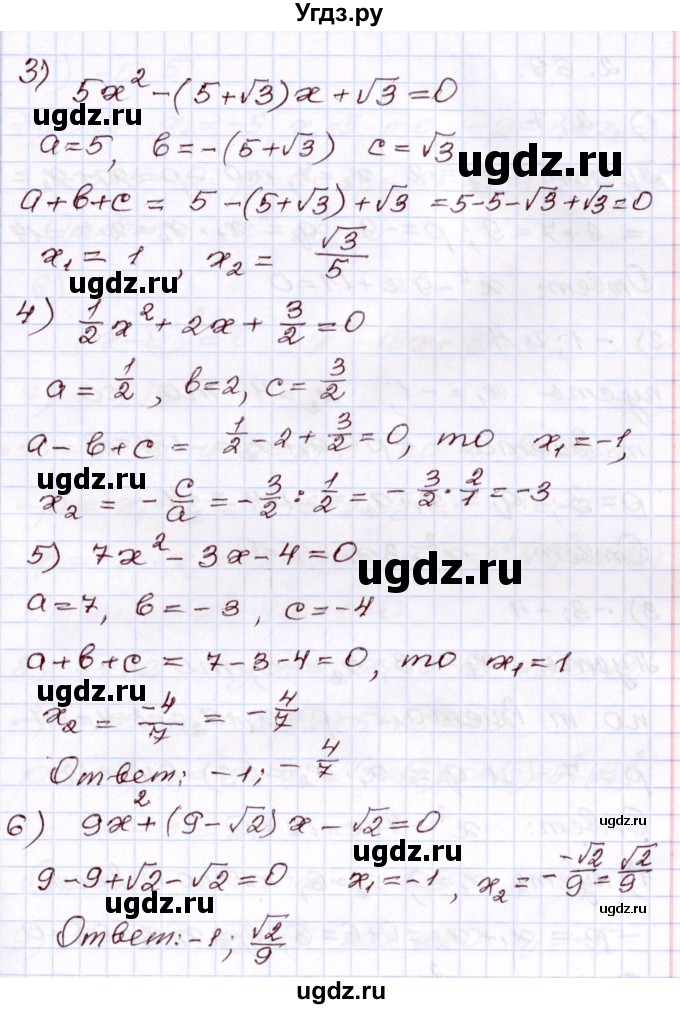 Угдз.ру
3) 5x² - (5+√3)x + √3 = 0
a=5, b = -(5+√3) c = √3
ugdz.ru
ugdz.ru
a+b+c = 5 - (5+√3) + √3 = 5-5-√3+√3=0
x₁ = 1, x₂ = √3/5
ugdz.ru
4) 1/2 x² + 2x + 3/2 = 0
a = 1/2, b=2, c = 3/2
ugdz.ru
a-b+c = 1/2 - 2 + 3/2 = 0, то x₁=-1,
ugdz.ru
x₂ = - c/a = - 3/2 : 1/2 = - 3/2 · 2/1 = -3
5) 7x² - 3x - 4 = 0
ugdz.ru
a=7, b = -3, c = -4
a+b+c = 7-3-4=0, то x₁=1
ugdz.ru
x₂ = -4/7 = - 4/7
Ответ: -1; - 4/7
6) 9x² + (9-√2)x - √2 = 0
ugdz.ru
ugdz.ru
9-9+√2-√2=0 x₁=-1, x₂= - -√2/9 = √2/9
ugdz.ru
ugdz.ru
Ответ: -1; √2/9
ugdz.ru
ugdz.ru